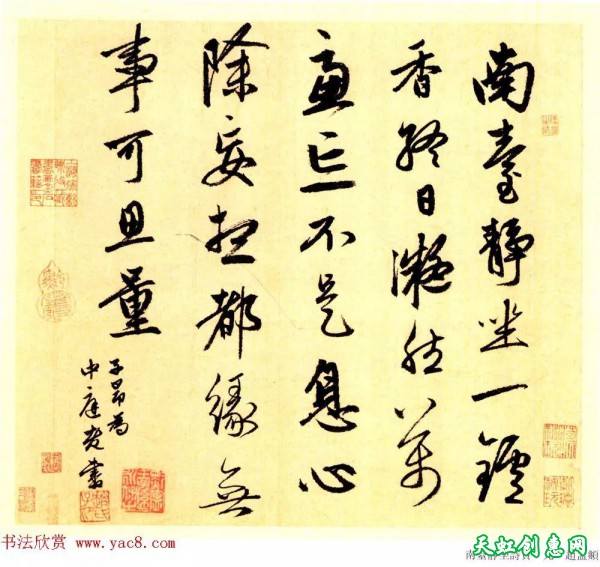 南臺靜坐一鑪
香終日凝然萬
慮亡不是息心
除妄想都緣無
事可思量
子昂為
中庭書
书法欣赏 www.yac8.com
天虹创惠网
趙孟頫